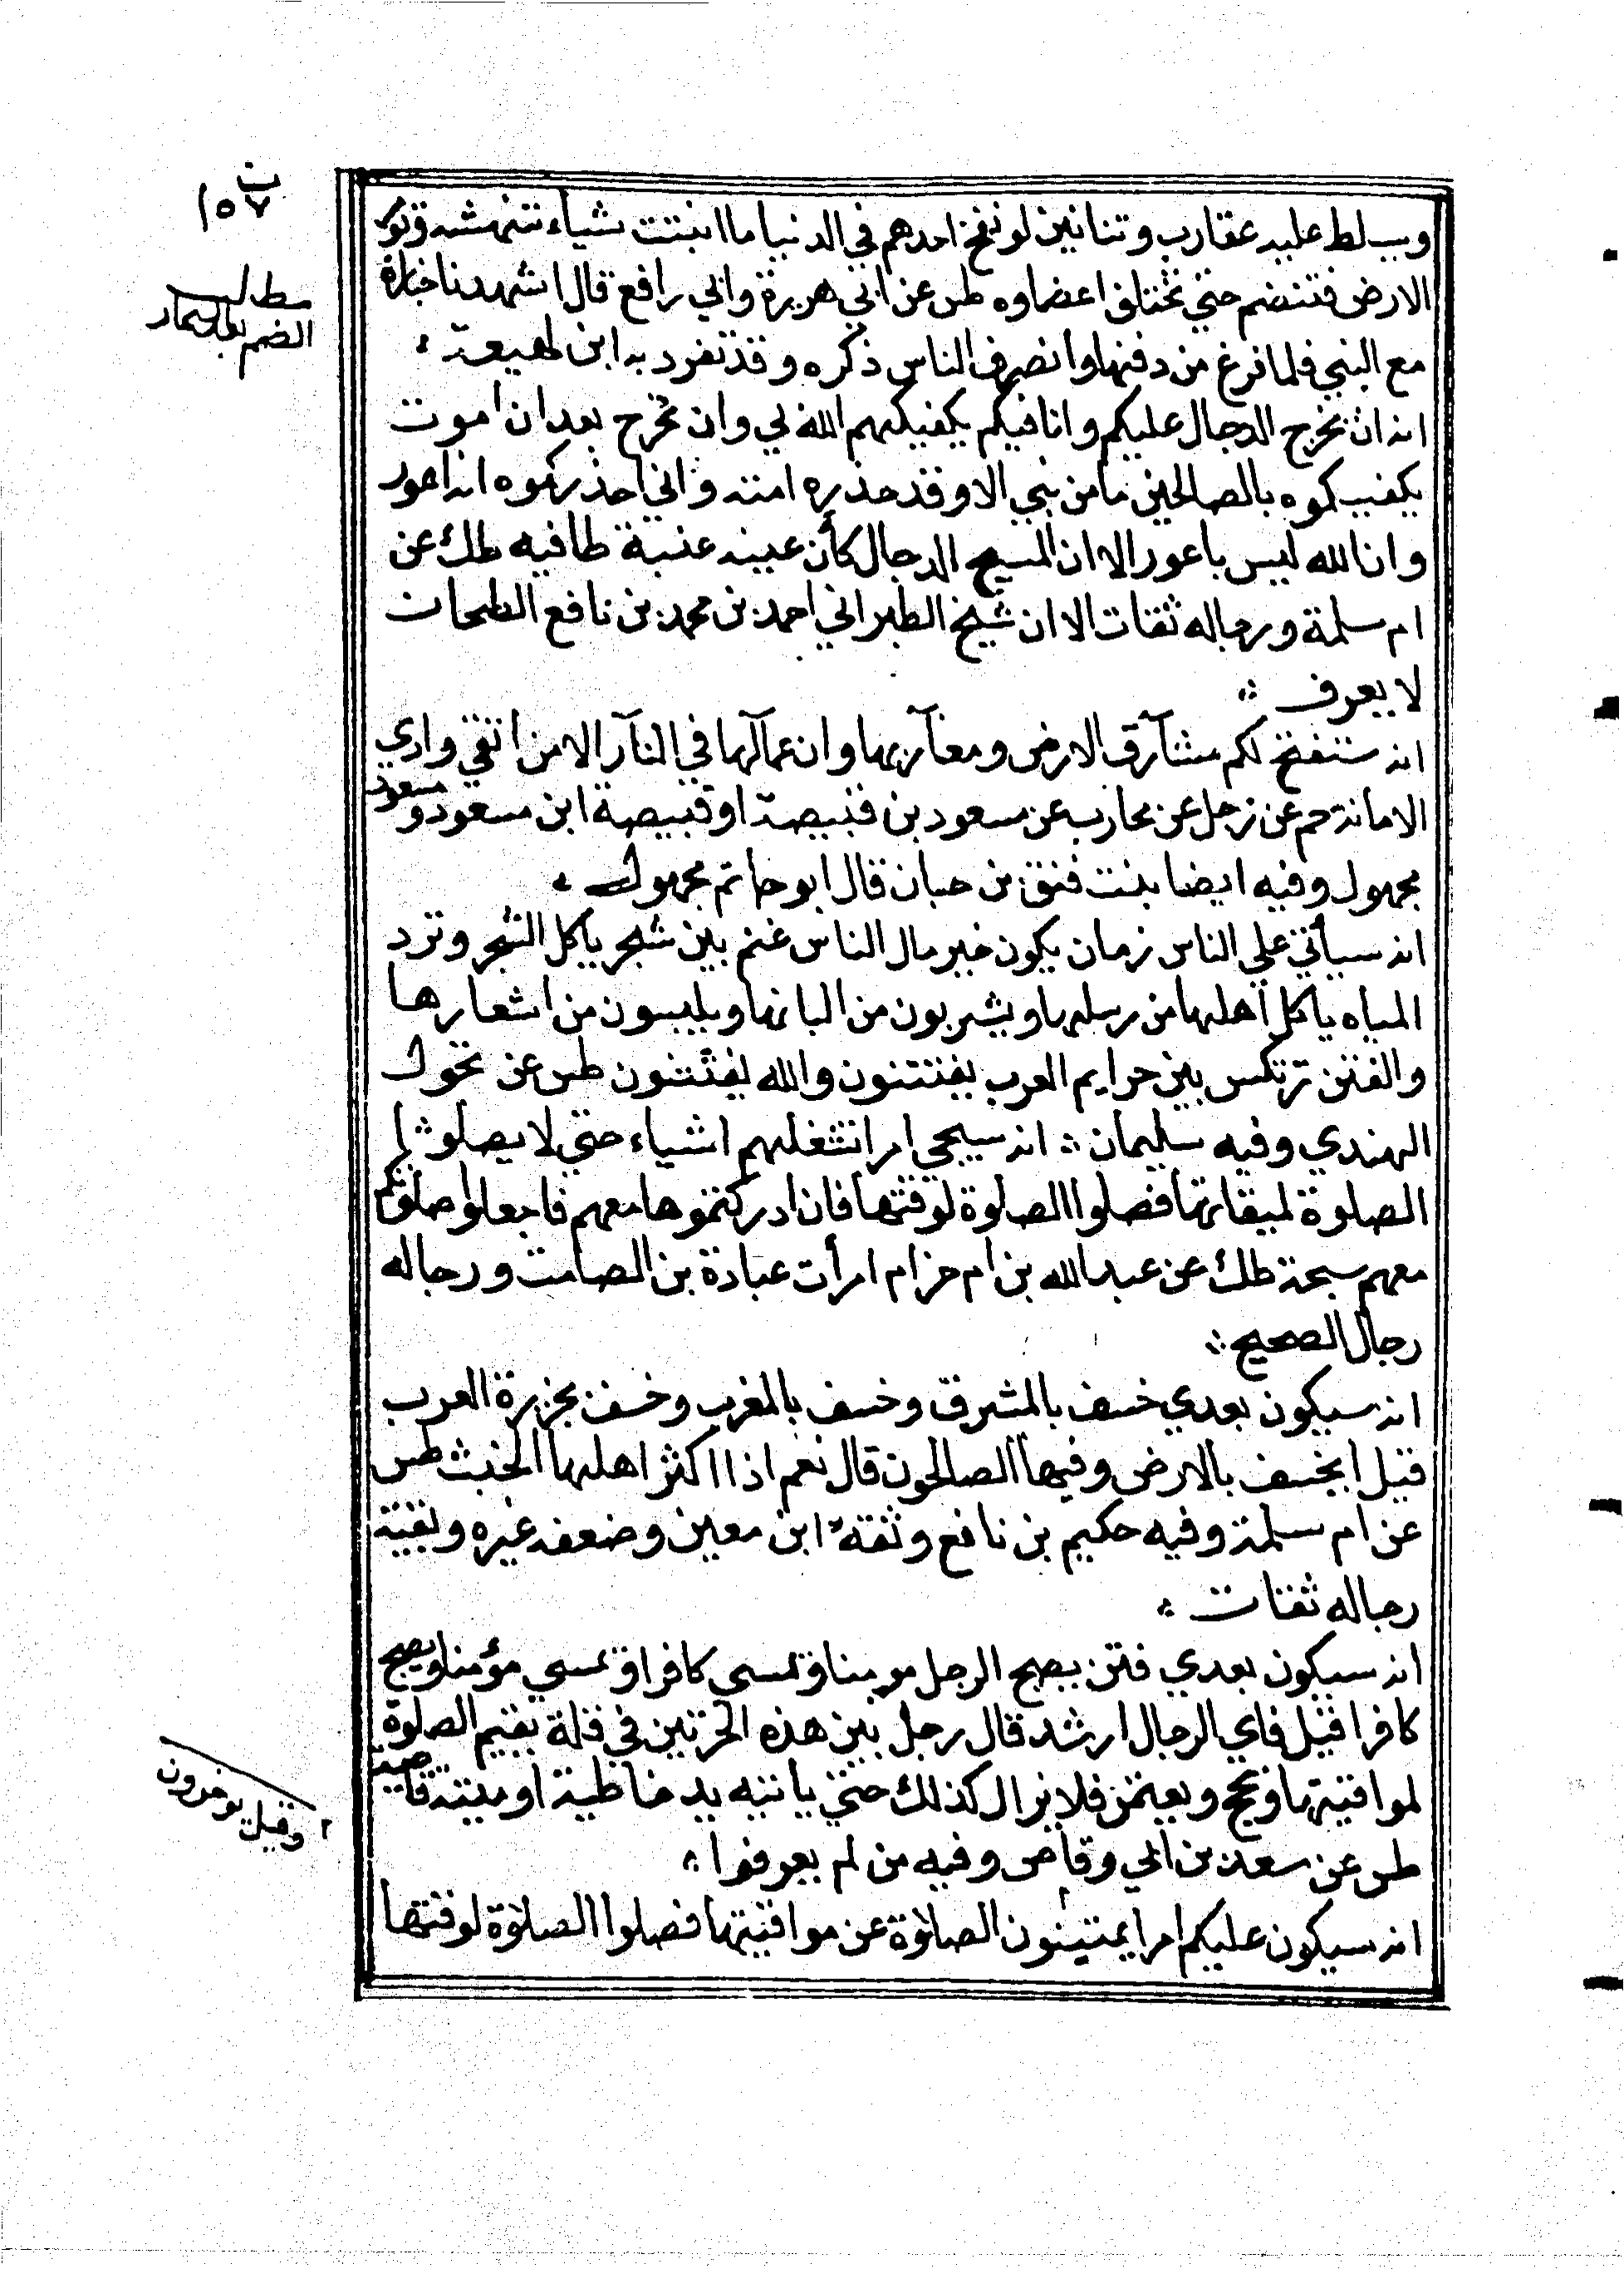 ب
١٥٧
ويسلط عليه عقارب وتنانين لو نفخ احدهم في الدنيا ما انبتت شياء تنهشه وتؤمر
الارض فتنضم حتي تختلف اعضاوه طس عن ابي هريرة وابي رافع قال اشهدنا جنازة
مع النبي فلما فرغ من دفنها وانصرف الناس ذكره وقد تفرد به ابن لهيعة
انه ان يخرج الدجال عليكم وانا فيكم يكفيكهم الله لي وان يخرج بعد ان اموت
يكفيكموه بالصالحين ما من نبي الا وقد حذره امته واني احذركموه انه اعور
وان الله ليس باعور الا ان المسيح الدجال كأن عينه عنبة طافيه طك عن
ام سلمة ورجاله ثقات الا ان شيخ الطبراني احمد بن محمد بن نافع الطحان
لا يعرف
انه ستفتح لكم مشآرق الارض ومغآربها وان عمآلها في النآر الا من اتقي وادي
الامانة حم عن رجل عن محارب عن مسعود بن قبيصة او قبيصة ابن مسعود ومسعود
مجهول وفيه ايضا بنت فنق بن حبان قال ابو حاتم مجهول
انه سيأتي علي الناس زمان يكون خير مال الناس غنم بين شجر ياكل الشجر وترد
المياه ياكل اهلها من رسلها ويشربون من البانها ويلبسون من اشعارها
والفتن ترتكس بين حرايم العرب يفتتنون والله يفتنون طس عن مخول
البهندي وفيه سليمان انه سيجي امرا تشغلهم اشياء حتي لا يصلون
الصلوة لميقاتها فصلوا الصلوة لوقتها فان ادركتموها معهم فاجعلوا صلوتكم
معهم سبحة طك عن عبد الله بن ام حزام امرأت عبادة بن الصامت ورجاله
رجال الصحيح
انه سيكون بعدي خسف بالمشرق وخسف بالمغرب وخسف بجزيرة العرب
قيل ايخسف بالارض وفيها الصالحون قال نعم اذا اكثر اهلها الخبث طس
عن ام سلمة وفيه حكيم بن نافع وثقه ابن معين وضعفه غيره وبقية
رجاله ثقات
انه سيكون بعدي فتن يصبح الرجل مومنا ويمسي كافرا ويمسي مؤمنا ويصبح
كافرا قيل فاي الرجال ارشد قال رجل بين هذه الحرتين في قلة يقيم الصلوة
لمواقيتها ويحج ويعتمر فلا يزال كذلك حتي ياتيه يد خاطية او ميتة قاضية
طس عن سعد بن ابي وقاص وفيه من لم يعرفوا
انه سيكون عليكم امرا يميتون الصلاة عن مواقيتها فصلوا الصلاة لوقتها
مطالب
الضم
٢ وقيل يوخرون